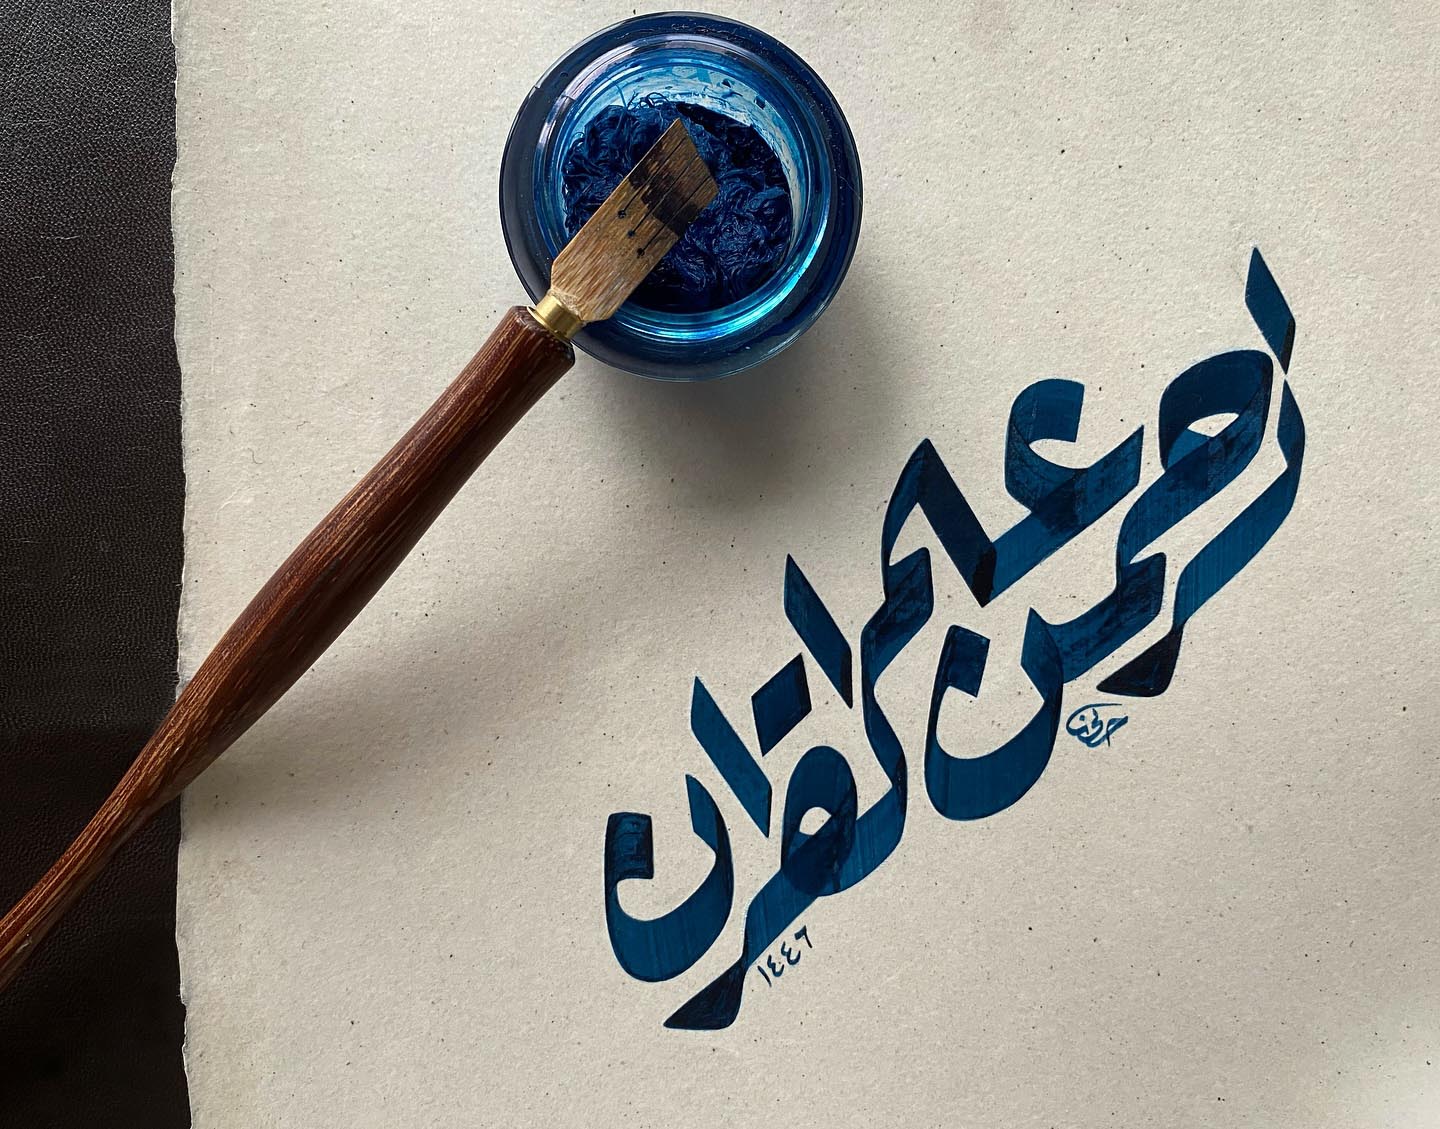 الرحمن علم القران
١٤٤٦